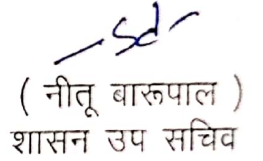 -sd-
( नीतू बारूपाल )
शासन उप सचिव